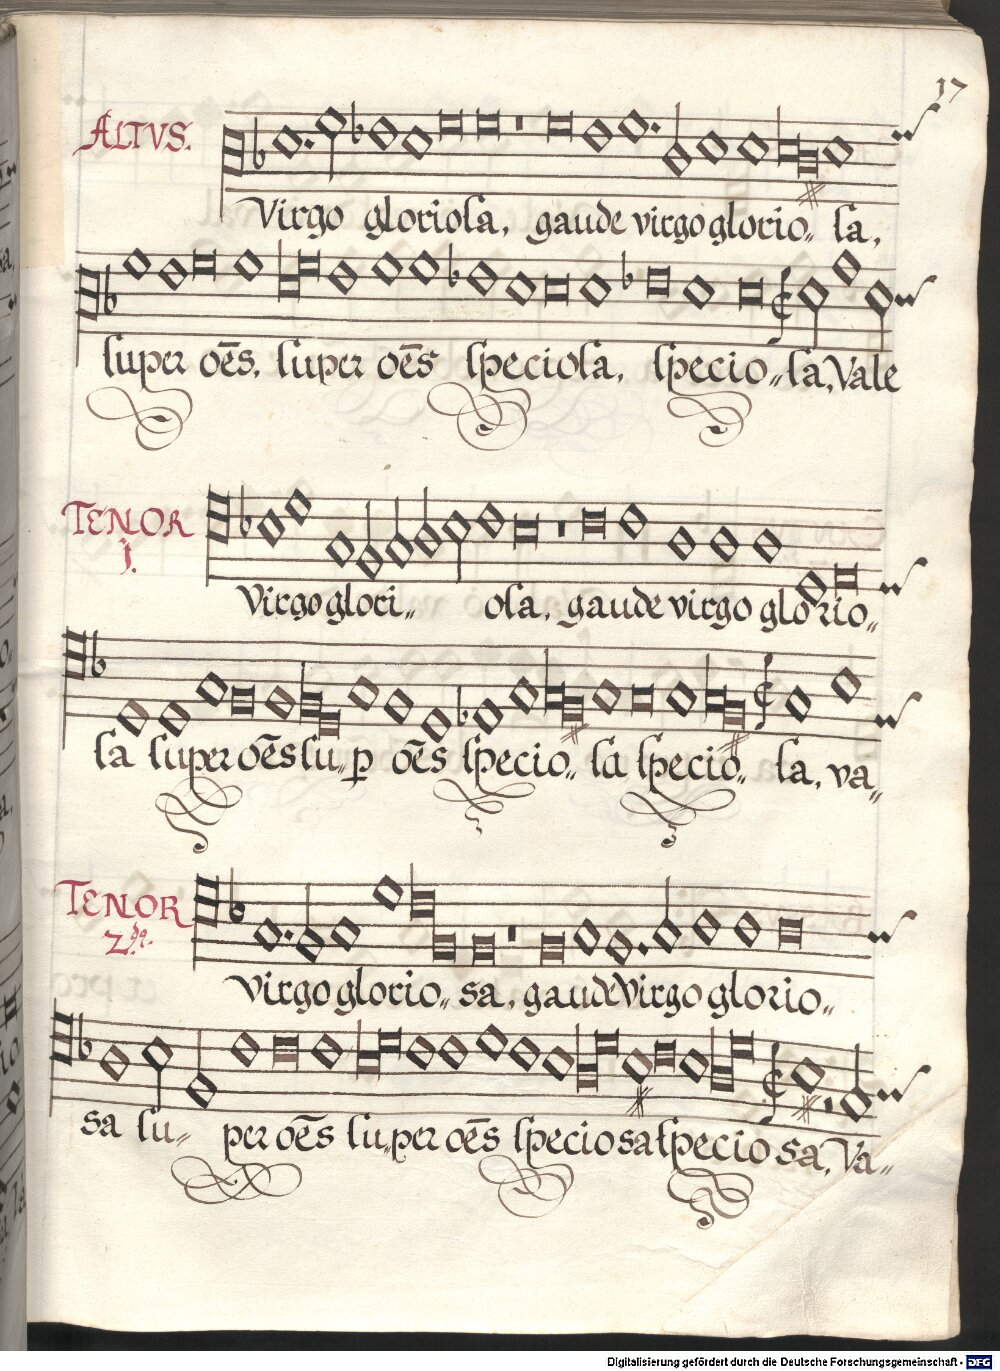 17
ALTVS.
Virgo gloriosa, gaude virgo glorio„ sa,
super oēs, super oēs speciosa, specio„sa, Vale
TENOR
j.
Virgo glori„ osa, gaude virgo glorio„
sa super oēs su„ꝑ oēs specio„ sa specio„ sa, va„
TENOR
2
Virgo glorio„ sa, gaude Virgo glorio„
sa su„ per oēs su„per oēs speciosa specio sa, Va„
Digitalisierung gefördert durch die Deutsche Forschungsgemeinschaft - DFG